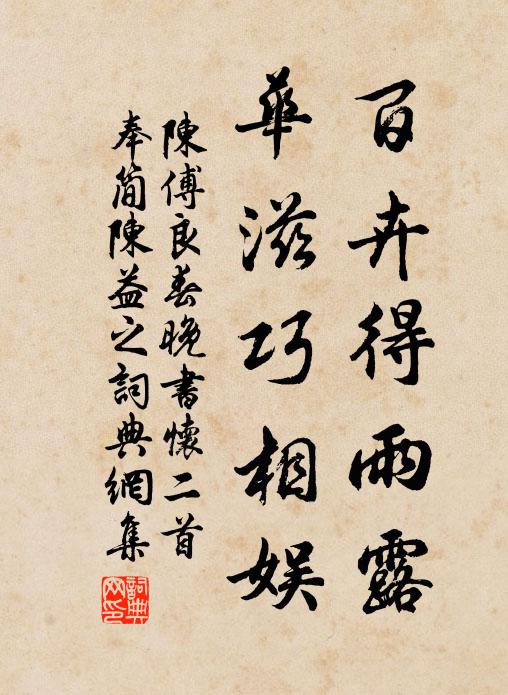 百卉得雨露
華滋巧相娛
陳傅良春晚書懷二首
奉簡陳益之詞典網集
詞典网印